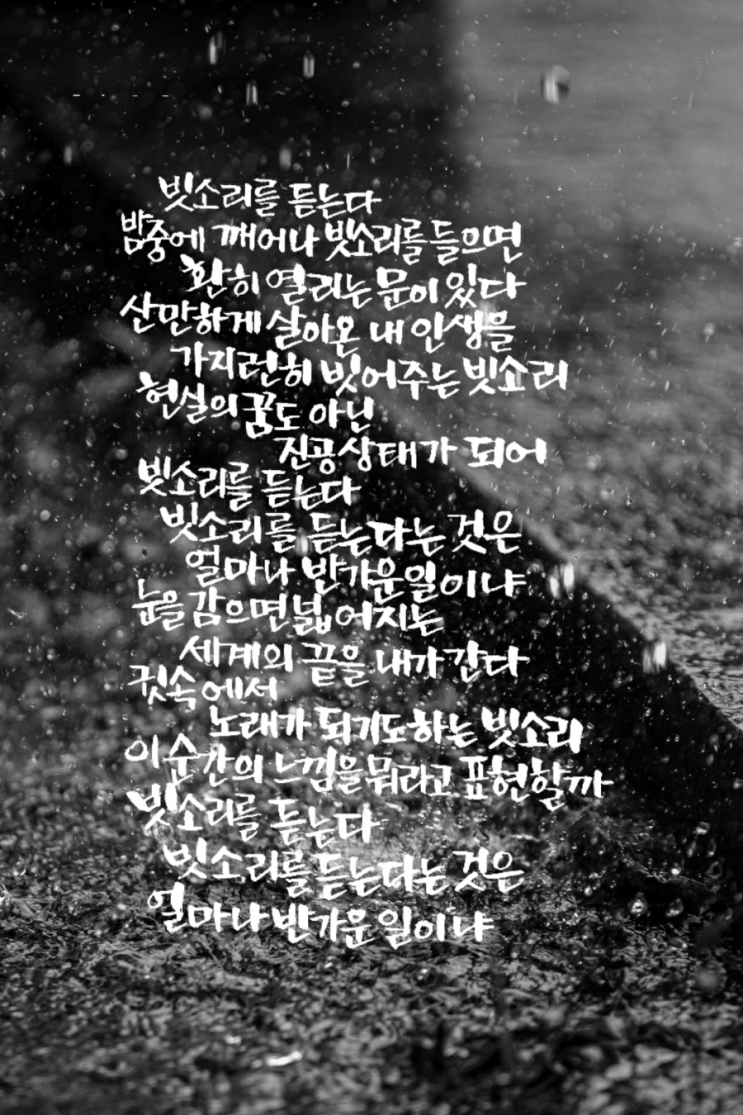 빗소리를 듣는다
밤중에 깨어나 빗소리를 들으면
환히 열리는 문이 있다
산만하게 살아온 내 인생을
가지런히 빗어주는 빗소리
현실의 꿈도 아닌
진공상태가 되어
빗소리를 듣는다
빗소리를 듣는다는 것은
얼마나 반가운 일이냐
눈을 감으면 넓어지는
세계의 끝을 내가 간다
귓속에서
노래가 되기도 하는 빗소리
이 순간의 느낌을 뭐라고 표현할까
빗소리를 듣는다
빗소리를 듣는다는 것은
얼마나 반가운 일이냐